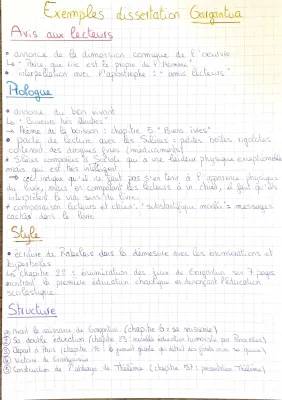 Exemples dissertation Gargantua
Avis aux lecteurs
• annonce de la dimension comique de l'oeuvre
↳ " Mieux que rire est le propre de l'Homme"
• interpellation avec l'apostrophe : " amis lecteurs"
Prologue
• annonce du bon vivant
↳ " Buveurs très illustres"
↳ thème de la boisson : chapitre 5 " Biens ivres"
• pacte de lecture avec les Silènes : petites boîtes rigolotes
contenant des drogues fines (médicaments)
• Silènes comparées à Socrate qui a une laideur physique exceptionnelle
mais qui est très intelligent
→ ceci indique qu'il ne faut pas s'en tenir à l'apparence physique
du livre, mais en comparant les lecteurs à un chien, il faut qu'ils
interprètent le vrai sens du livre
• comparaison lecteurs et chiens : "substantifique moelle" = messages
cachés dans le livre
Style
• écriture de Rabelais dans la démesure avec les énumérations et
hyperboles
↳ chapitre 22 : énumération des jeux de Gargantua sur 7 pages
montrant la première éducation chaotique en dénonçant l'éducation
scolastique
Structure
Avant la naissance de Gargantua (chapitre 6 = sa naissance)
Sa double éducation (chapitre 23 : nouvelle éducation humaniste par Ponocrates)
Départ à Paris (chapitre 16 : la jument géante qui détruit des forêts avec sa queue)
Victoire de Grandgousier
Construction de l'abbaye de Thélème (chapitre 57 : présentation Thélème)